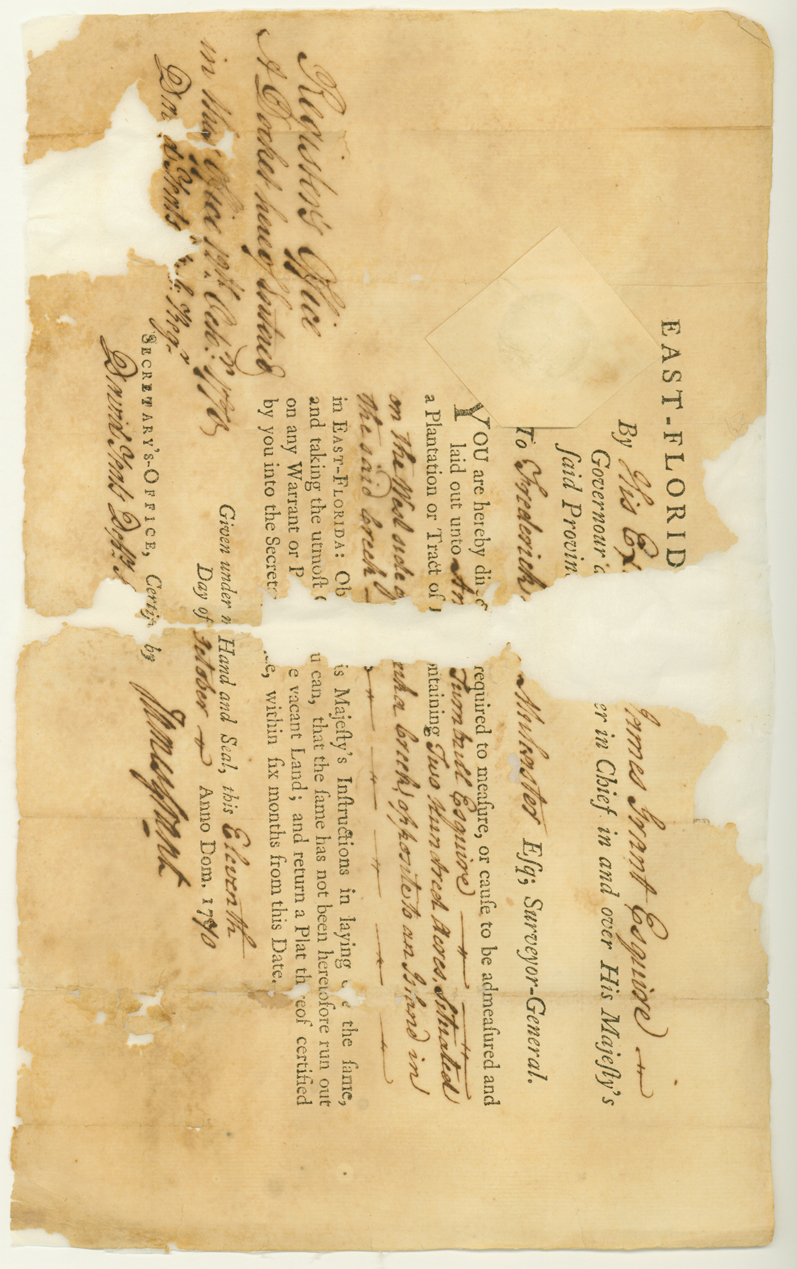 EAST-FLORID
By His Ex James Grant Esquire
Governour a er in Chief in and over His Majeſty's
ſaid Provin
To Frederick Mulcaster Eſq; Surveyor-General.
YOU are hereby di required to meaſure, or cauſe to be admeaſured and
laid out unto An Turnbull Esquire
a Plantation or Tract of ntaining Two Hundred Acres. Situated
on the West side creek, opposite to an Island in
the said creek
in EAST-FLORIDA: Ob is Majeſty's Inſtructions in laying the ſame,
and taking the utmoſt u can, that the ſame has not been heretofore run out
on any Warrant or P e vacant Land; and return a Plat th reof certified
by you into the Secret e, within ſix months from this Date.
Given under Hand and Seal, this Eleventh
Day of October Anno Dom. 1770
James Grant
SECRETARY'S-OFFICE, Certif by
David Yeats
Register's Office
A Docket hereof Entered
in this Office 12th Octr. 1770
D Yeats Regr